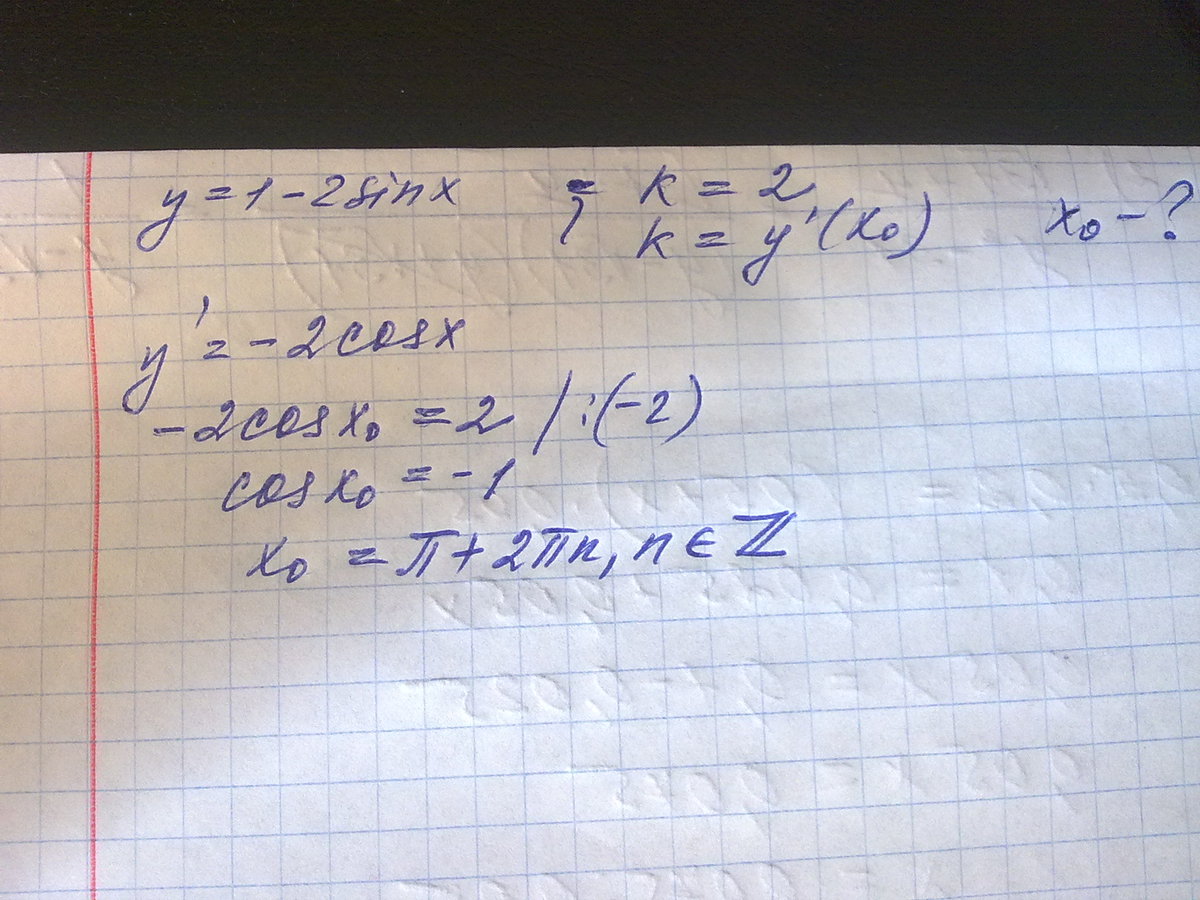 y = 1 - 2sinx ; k = 2, x₀ - ?
k = y'(x₀)
y' = -2cosx
-2cosx₀ = 2 / :(-2)
cosx₀ = -1
x₀ = π + 2πn, n ∈ ℤ